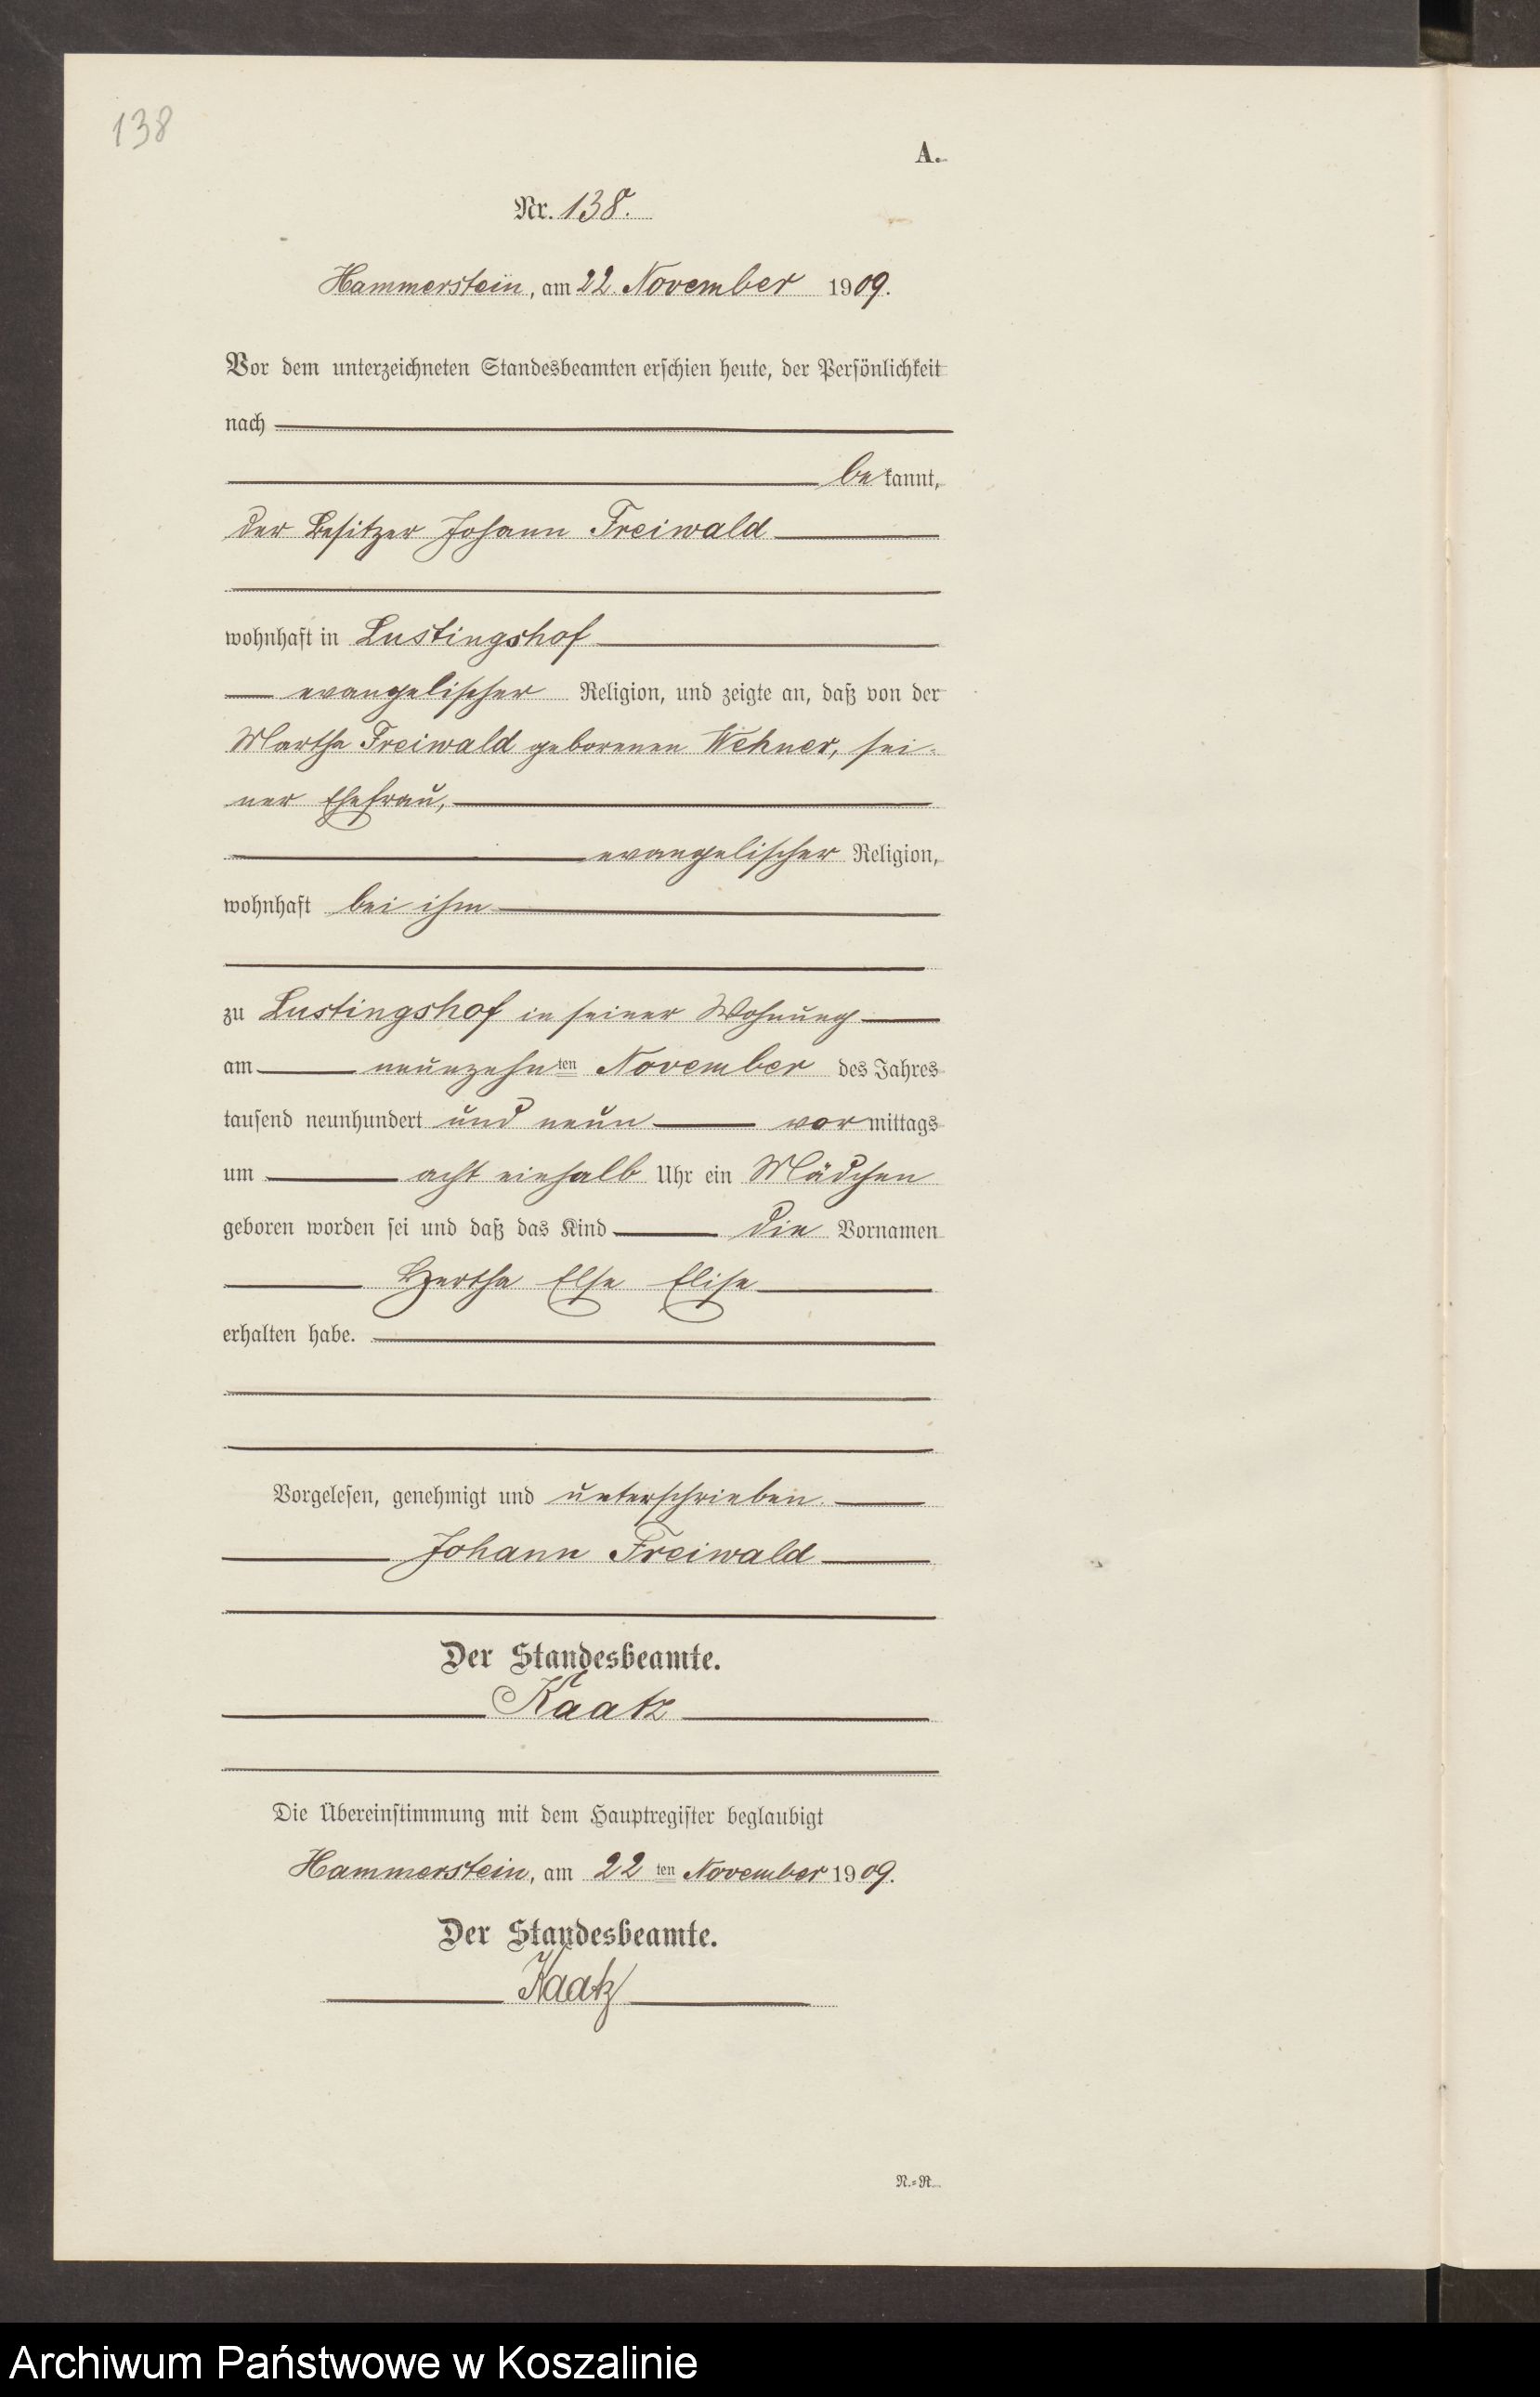 138
A.
Nr. 138.
Hammerstein, am 22. November 1909.
Vor dem unterzeichneten Standesbeamten erschien heute, der Persönlichkeit
nach
bekannt,
der Besitzer Johann Freiwald
wohnhaft in Lustingshof
evangelischer Religion, und zeigte an, daß von der
Martha Freiwald geborenen Wehner, sei-
ner Ehefrau,
evangelischer Religion,
wohnhaft bei ihm
zu Lustingshof in seiner Wohnung
am neunzehnten November des Jahres
tausend neunhundert und neun vormittags
um acht einhalb Uhr ein Mädchen
geboren worden sei und daß das Kind die Vornamen
Hertha Else Elise
erhalten habe.
Vorgelesen, genehmigt und unterschrieben.
Johann Freiwald
Der Standesbeamte.
Kaatz
Die Übereinstimmung mit dem Hauptregister beglaubigt
Hammerstein, am 22ten November 1909.
Der Standesbeamte.
Kaatz
N.-R.
Archiwum Państwowe w Koszalinie